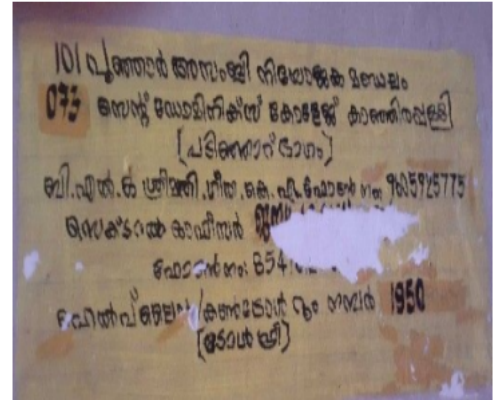 101 പൂഞ്ഞാർ അസംബ്ലി നിയോജക മണ്ഡലം
073 സെന്റ് ഡോമിനിക്സ് കോളേജ് കാഞ്ഞിരപ്പള്ളി
(പടിഞ്ഞാറ് ഭാഗം)
ബി.എൽ.ഒ ശ്രീമതി.ഗീത.കെ.എം.ഫോൺ നം 9605925775
സെക്ടറൽ ഓഫീസർ
ഫോൺനം: 854
ഹെൽപ് ലൈൻ/കൺട്രോൾ റൂം നമ്പർ 1950
(ടോൾ ഫ്രീ)